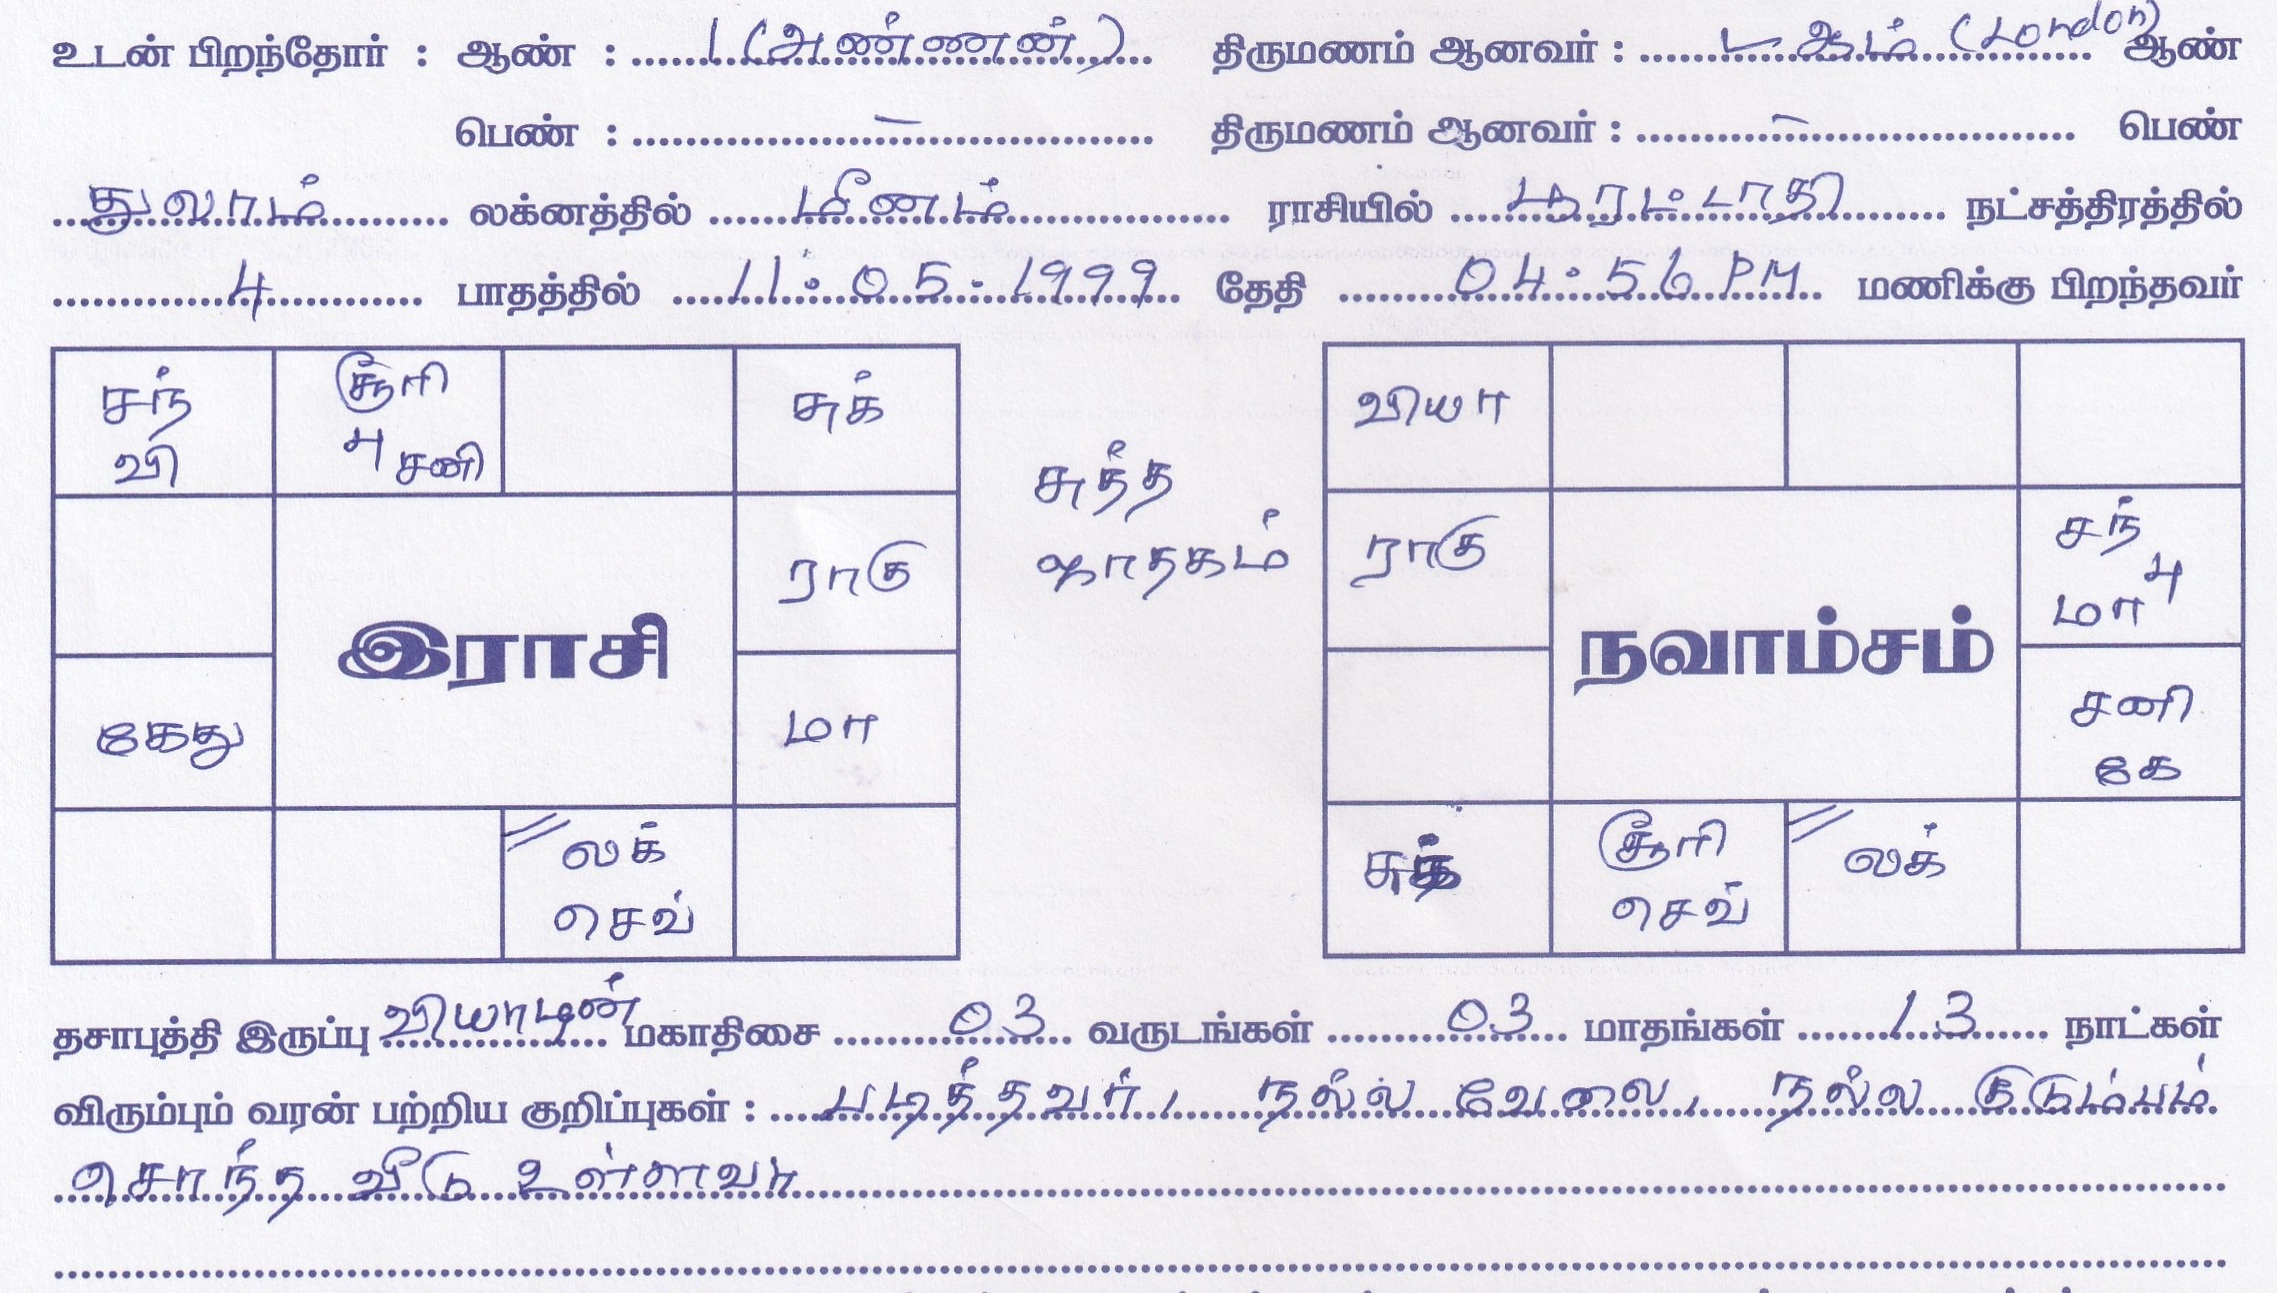 உடன் பிறந்தோர் : ஆண் : 1 (அண்ணன்) திருமணம் ஆனவர் : (London) ஆண்
பெண் : – திருமணம் ஆனவர் : – பெண்
துலாம் லக்னத்தில் மீனம் ராசியில் பூரட்டாதி நட்சத்திரத்தில்
4 பாதத்தில் 11.05.1999 தேதி 04.56 PM மணிக்கு பிறந்தவர்
சந் சூரி சுக்
வி பு சனி
ராகு
கேது இராசி மா
லக்
செவ்
சுத்த
ஜாதகம்
வியா
ராகு சந்
பு
மா
நவாம்சம்
சனி
கே
சுக் சூரி லக்
செவ்
தசாபுத்தி இருப்பு வியாழன் மகாதிசை 03 வருடங்கள் 03 மாதங்கள் 13 நாட்கள்
விரும்பும் வரன் பற்றிய குறிப்புகள் : படித்தவர், நல்ல வேலை, நல்ல குடும்பம்
சொந்த வீடு உள்ளவர்